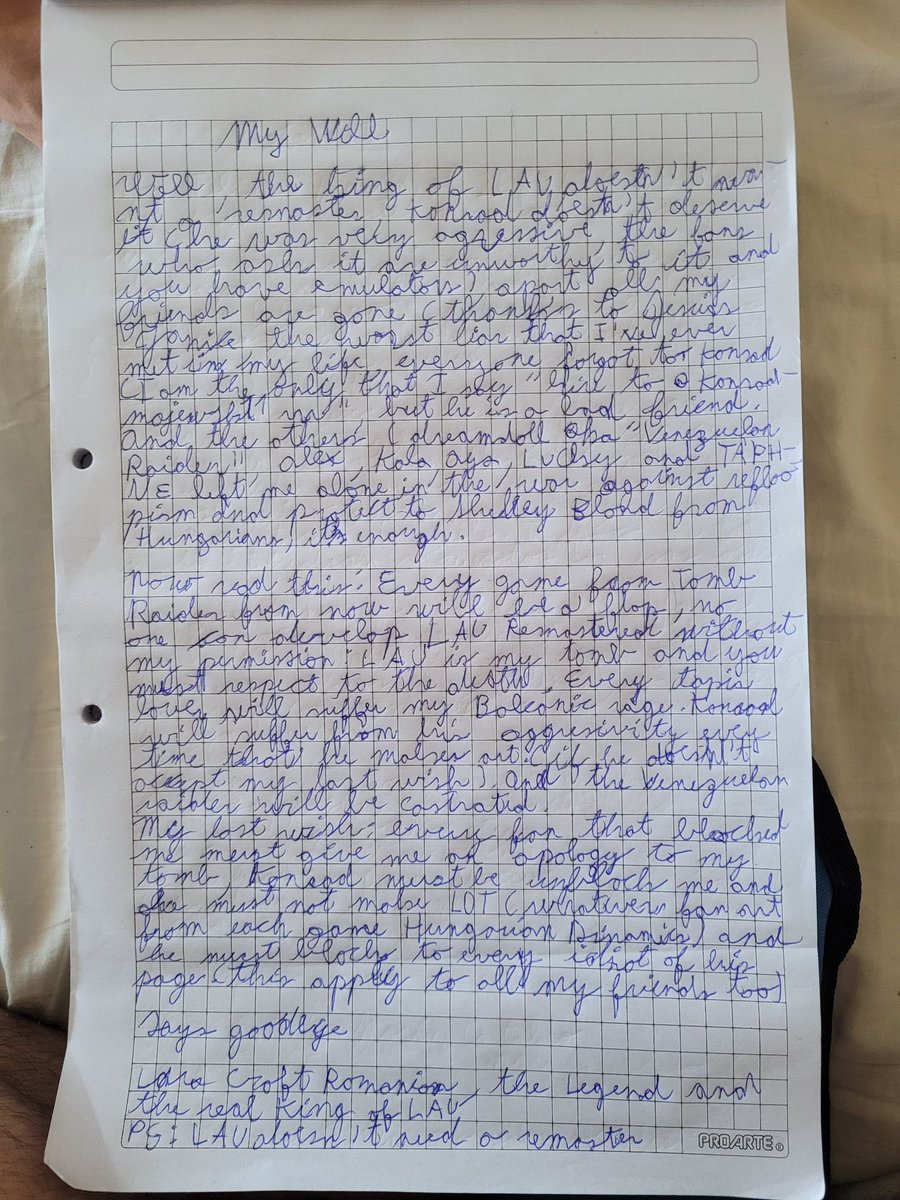 My Will
Well, the king of LAU doesn't wa-
nt remaster, Konrad doesn't deserve
it (he was very agressive, the fans
who asks it are unworthy to it and
you have emulators) apart all my
friends are gone (thanks to
the worst liar that I've ever
met in my life, everyone forgot too Konrad
(I am the only that I say "hi to Konrad-
but he is a bad friend.
And the others (dreamdoll aka "Venezuelan
Raider" Alex, Kala Aya, and TAPH-
NE left me alone in the war against
and protect to Shelley Blood from
Hungarians, it's enough.
Now read this: Every game from Tomb
Raider from now will be a flop, no
one can develop LAU Remastered without
my permission: LAU is my tomb and you
must respect to the death. Every
lover will suffer my Balcanic rage. Konrad
will suffer from his aggresivity every
time that he makes art (if he doesn't
accept my last wish) and the Venezuelan
raider will be castrated.
My last wish: every fan that blocked
me must give me an apology to my
tomb, Konrad must be unblock me and
he must not make LOT (whatever fan art
from each game Hungarian Dinamics) and
he must block to every idiot of his
page (this apply to all my friends too)
Says goodbye
Lara Croft Romanian, the Legend and
the real King of LAU
PS: LAU doesn't need a remaster
PROARTE®